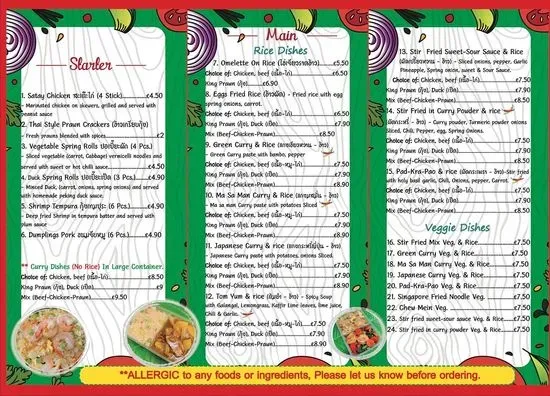 Starter
1. Satay Chicken สะเต๊ะไก่ (4 Stick).......£4.50
- Marinated chicken on skewers, grilled and served with peanut sauce
2. Thai Style Prawn Crackers (ข้าวเกรียบกุ้ง)
- Fresh prawns blended with spices.......£2
3. Vegetable Spring Rolls ปอเปี๊ยะผัก (4 Pcs.)
- Sliced vegetable (carrot, Cabbage) vermicelli noodles and
served with sweet or hot chilli sauce.......£4.50
4. Duck Spring Rolls ปอเปี๊ยะเป็ด (3 Pcs.)....£4.90
- Minced Duck, (carrot, onions, spring onions) and served with
homemade peking duck sauce.
5. Shrimp Tempura (6 Pcs.)....£4.90
- Deep fried Shrimp in tempura batter and served with
plum sauce
6. Dumplings Pork ขนมจีบหมู (6 Pcs.)....£4.90
** Curry Dishes (No Rice) In Large Container.
Choice of: Chicken, beef (เนื้อ-ไก่).......£8.50
King Prawn (กุ้ง), Duck (เป็ด).......£9
Mix (Beef-Chicken-Prawn).......£9.50
Main
Rice Dishes
7. Omelette On Rice (ไข่เจียวราดข้าว).......£5.50
Choice of: Chicken, beef (เนื้อ-ไก่).......£6.50
King Prawn (กุ้ง).......£6.90
8. Eggs Fried Rice (ข้าวผัด) - Fried rice with egg
spring onions, carrot.
Choice of: Chicken, beef (เนื้อ-ไก่).......£6.50
King Prawn (กุ้ง), Duck (เป็ด).......£6.90
Mix (Beef-Chicken-Prawn).......£7.90
9. Green Curry & Rice
- Green Curry paste with bambo, pepper
Choice of: Chicken, beef (เนื้อ-หมู-ไก่).......£7.50
King Prawn (กุ้ง), Duck (เป็ด).......£7.90
Mix (Beef-Chicken-Prawn).......£8.90
10. Ma Sa Man Curry & Rice
- Ma sa man Curry paste with potatoes Sliced
Choice of: Chicken, beef (เนื้อ-หมู-ไก่).......£7.50
King Prawn (กุ้ง), Duck (เป็ด).......£7.90
Mix (Beef-Chicken-Prawn).......£8.90
11. Japanese Curry & rice
- Japanese Curry paste with potatoes, onions Sliced.
Choice of: Chicken, beef (เนื้อ-หมู-ไก่).......£7.50
King Prawn (กุ้ง), Duck (เป็ด).......£7.90
Mix (Beef-Chicken-Prawn).......£8.90
12. Tom Yum & rice (ต้มยำ - ข้าว) - Spicy Soup
with Galangal, Lemongrass, Kaffir Lime leaves, lime juice,
Chili & Garlic.
Choice of: Chicken, beef (เนื้อ-หมู-ไก่).......£7.50
King Prawn (กุ้ง), Duck (เป็ด).......£7.90
Mix (Beef-Chicken-Prawn).......£8.90
13. Stir Fried Sweet-Sour Sauce & Rice
(ผัดเปรี้ยวหวาน - ข้าว) - Sliced onions, pepper, Garlic
Pineapple, Spring onion, sweet & Sour Sauce.
Choice of: Chicken, beef (เนื้อ-ไก่).......£7.50
King Prawn (กุ้ง), Duck (เป็ด).......£7.90
Mix (Beef-Chicken-Prawn).......£8.90
14. Stir Fried in Curry Powder & rice
(ผัดผงกะหรี่ - ข้าว) - Curry powder, Turmeric powder onions
Sliced, Chili, Pepper, egg, Spring Onions.
Choice of: Chicken, beef (เนื้อ-ไก่).......£7.50
King Prawn (กุ้ง), Duck (เป็ด).......£7.90
Mix (Beef-Chicken-Prawn).......£8.90
15. Pad-Kra-Pao & rice - Stir fried
with holy basil garlic, Chili, Onions, pepper, Carrot.
Choice of: Chicken, beef (เนื้อ-ไก่).......£7.50
King Prawn (กุ้ง), Duck (เป็ด).......£7.90
Mix (Beef-Chicken-Prawn).......£8.90
Veggie Dishes
16. Stir Fried Mix Veg. & Rice.......£7.50
17. Green Curry Veg. & Rice.......£7.50
18. Ma Sa Man Curry Veg. & Rice.......£7.50
19. Japanese Curry Veg. & Rice.......£7.50
20. Pad-Kra-Pao Veg. & Rice.......£7.50
21. Singapore Fried Noodle Veg. .......£7.50
22. Chew Mein Veg. .......£7.50
23. Stir fried sweet-sour sauce Veg. & Rice.......£7.50
24. Stir fried in curry powder Veg. & Rice.......£7.50
**ALLERGIC to any foods or ingredients, Please let us know before ordering.